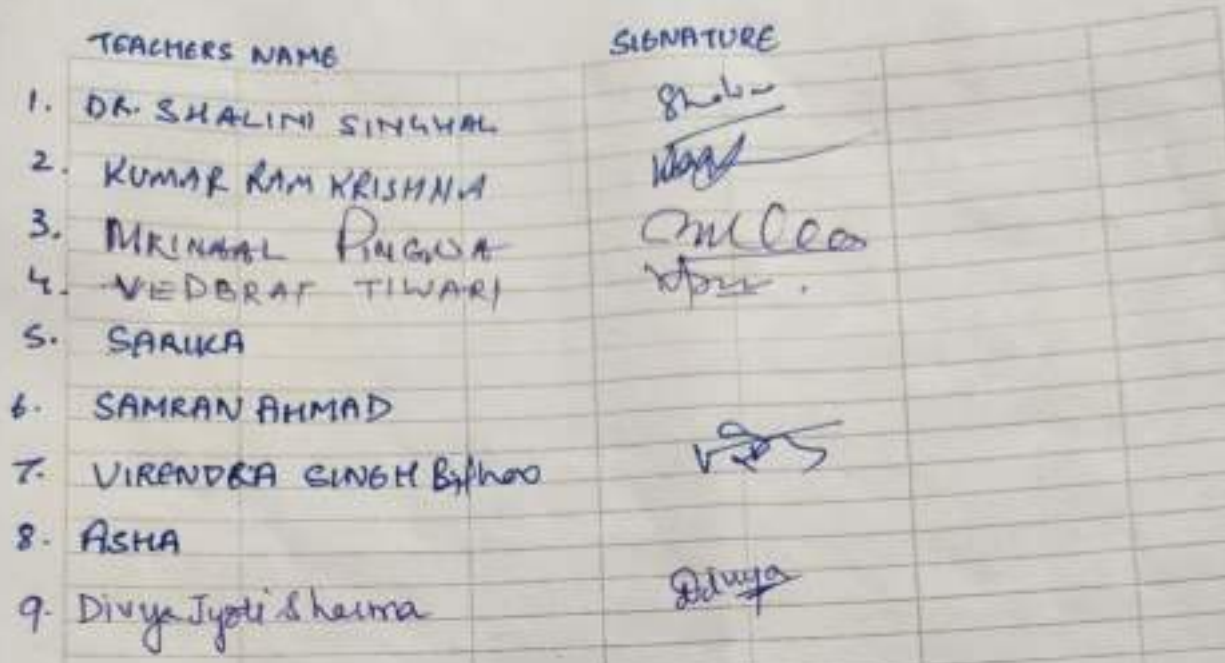 TEACHERS NAME SIGNATURE
1. DR. SHALINI SINGHAL
2. KUMAR RAM KRISHNA
3. MRINAAL PINGUA
4. VEDBRAT TIWARI
5. SARIKA
6. SAMRAN AHMAD
7. VIRENDRA SINGH
8. ASHA
9. Divya Jyoti Sharma Divya